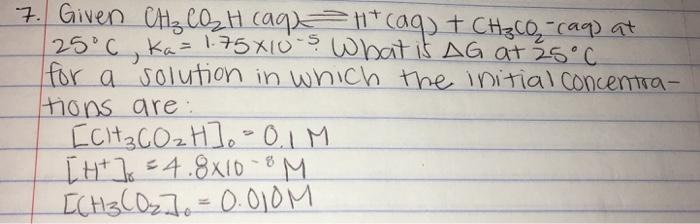 7. Given CH₃CO₂H (aq) ⇌ H⁺(aq) + CH₃CO₂⁻(aq) at
25°C, Ka = 1.75x10⁻⁵. What is ΔG at 25°C
for a solution in which the initial concentra-
tions are:
[CH₃CO₂H]₀ = 0.1 M
[H⁺]₀ = 4.8x10⁻⁸ M
[CH₃CO₂]₀ = 0.010M